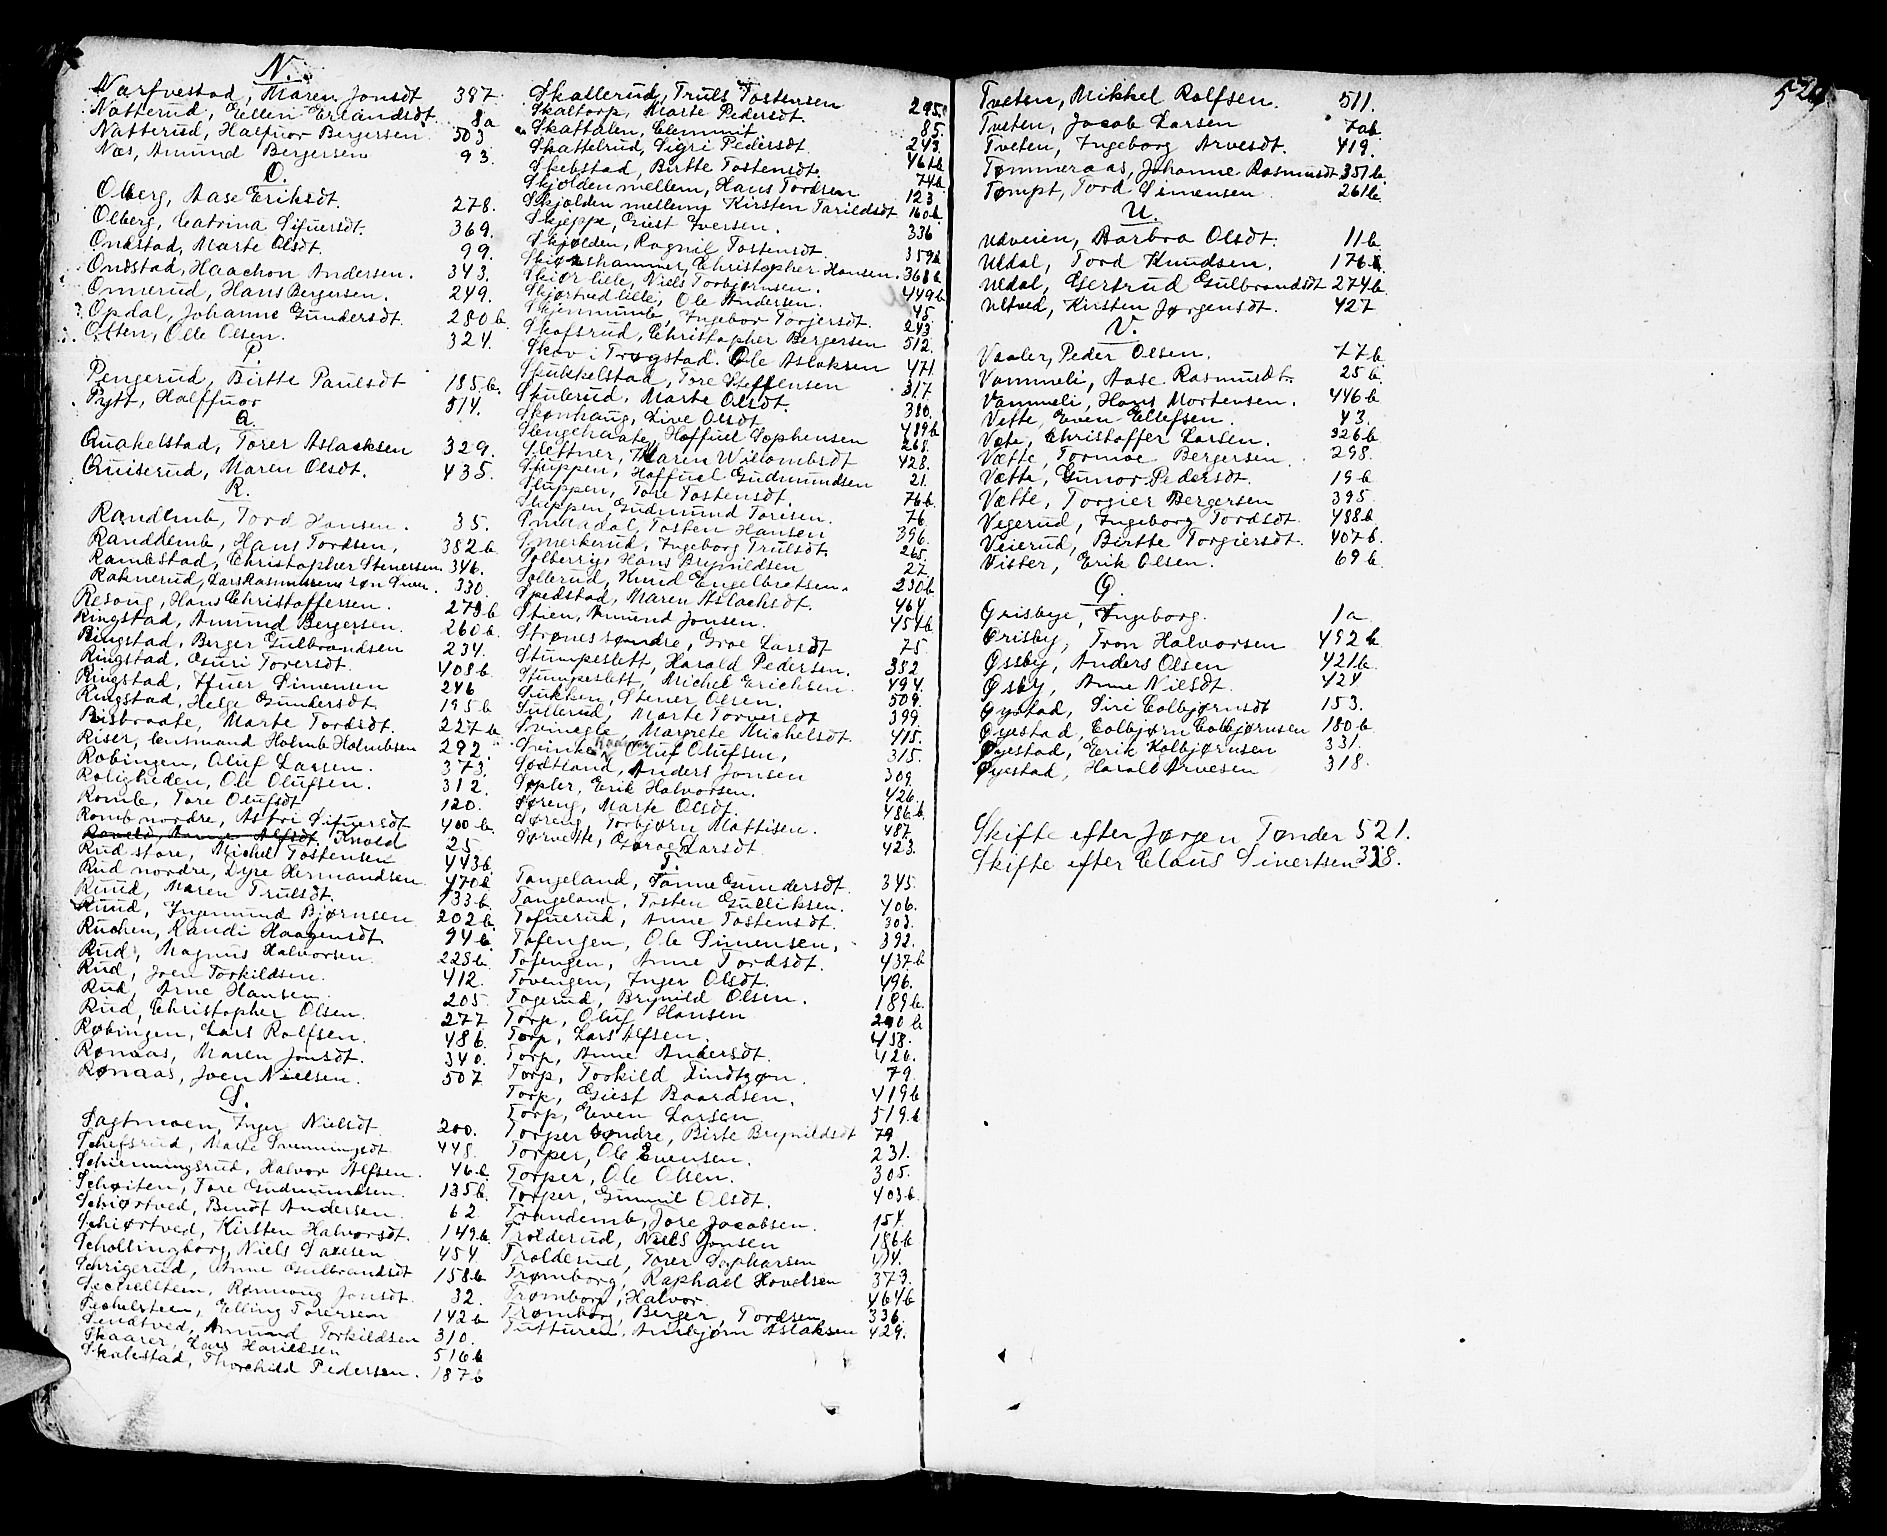 N.
Narfvestad, Maren Jonsdt 387.
Natterud, Ellen Erlandsdt. 8a
Natterud, Halfuor Bergersen 503
Næs, Amund Bergersen 93.
O.
Olberg, Aase Eriksdt. 278.
Olberg, Catrina Sifuersdt. 369.
Onestad, Marte Olsdt. 99.
Onestad, Haachon Andersen. 343.
Onnerud, Hans Bergersen. 249.
Opdal, Johanne Gundersdt. 280b.
Otten, Olle Olsen. 324.
P.
Pengerud, Birtte Paulsdt 185b.
Pytt, Halffuor 514.
Q.
Quakelstad, Torer Aslacksen 329.
Quiserud, Maren Olsdt. 435.
R.
Randemb, Tord Hansen. 35.
Randdemb, Hans Tordsen, 382b.
Rambstad, Christopher Stenersen. 346.
Raknerud, Lars Rasmussens søn Iver. 330.
Resoug, Hans Christoffersen. 279b
Ringstad, Amund Bergersen. 260b.
Ringstad, Berger Gulbrandsen 234.
Ringstad, Guri Torersdt. 408b
Ringstad, Ifuer Simensen 246
Ringstad, Helge Gundersdt. 195b
Risbraate, Marte Tordsdt. 227b
Riser, Gusmand Holmb Holmbsen 292.
Robingen, Oluf Larsen. 373.
Roligheden, Ole Olufsen. 312.
Romb, Tore Olufsdt 120.
Romb nordre, Astri Sifuersdt 400b.
Roveld, Anne Alfsdt. Knold 25
Rud store, Michel Tostensen 443b.
Rud nordre, Lyre Hermandsen 470b
Ruud, Maren Trulsdt. 133b.
Ruud, Ingemund Bjørnsen 202b
Ruchen, Randi Haagensdt 94b.
Rud, Magnus Halvorsen. 225b.
Rud, Joen Torkildsen. 412.
Rud, Arne Hansen 205.
Rud, Christopher Olsen. 277
Røbingen, Lars Rolfsen. 486.
Rønaas, Maren Jonsdt. 340.
Rønaas, Joen Nielsen. 507
S.
Sagtmoen, Inger Nielsdt 200.
Schefsrud, Marte Svenningsdt 448.
Schienningsrud, Halvor Alfsen. 46b
Schøiten, Tore Gudmundsen. 135b.
Schiørtved, Bendt Andersen. 62
Schiørtved, Kirsten Halvorsdt. 149b
Schollingborg, Niels Saxesen 454
Schrigerud, Anne Gulbrandsdt 158b
Sechelsteen, Rønnoug Jonsdt. 32.
Sechelsteen, Elling Torersen 142b
Sendtved, Amund Torkildsen 310.
Skaarer, Lars Harildsen 516b
Skalestad, Thorchild Pedersen. 187b
Skallerud, Truls Tostensen 295.
Skaltorp, Marte Pedersdt. 85.
Skattalen, Clemmit. 243.
Skattelrud, Sigri Pedersdt. 461b
Skebstad, Birtte Tostensdt. 74b
Skjolden mellem, Hans Tordsen 123
Skjolden mellem, Kirsten Tarildsdt 160b.
Skjeppe, Giest Iversen. 336
Skjolden, Ragnil Tostensdt. 359b
Skiønshammer, Christopher Hansen. 368b
Skiør lille, Niels Torbjørnsen. 449b
Skjørtved lille, Ole Andersen. 45.
Skjennumb, Ingebor Torjersdt. 243
Skofsrud, Christopher Bergersen 512.
Skov i Trøgstad. Ole Aslaksen 471
Skukkelstad, Tore Steffensen 317
Skulerud, Marte Olsdt. 380.
Skønhaug, Live Olsdt. 489b
Slengehaate, Haffuel Sophensen 268.
Slettner, Maren Willomsdt 428.
Sluppen, Haffuel Gudmundsen 21.
Sluppen, Tore Tostensdt. 76b.
Sluppen, Gudmund Torisen. 76
Smedadal, Tosten Hansen 396.
Smerkerud, Ingeborg Trulsdt. 265.
Solberrig, Hans Brynildsen 27
Sollerud, Knud Engelbretsen. 230b
Spedstad, Maren Aslachsdt. 464
Stien, Amund Jonsen. 454b
Strønes søndre, Groe Larsdt 75.
Stumpeslett, Harald Pedersen. 352
Stumpeslett, Michel Erichsen. 494.
Sukken, Stener Olsen. 509.
Sullerud, Marte Torversdt 399.
Svinegle, Margrete Michelsdt. 415.
Svinke, Oluf Olufsen, 315.
Sødtland, Anders Jonsen 309
Søpler, Erik Halvorsen. 426.
Søreng, Marte Olsdt. 486b.
Søreng, Torbjørn Mattisen. 487.
Sørvette, Groe Larsdt 423.
T.
Tangeland, Tønne Gundersdt. 345.
Tangeland, Tosten Gulliksen. 406.
Tofuerud, Anne Tostensdt. 303.
Tofengen, Ole Simensen, 392.
Tofengen, Anne Tordsdt. 437b
Tovengen, Inger Olsdt. 496.
Togerud, Brynild Olsen. 189b.
Torp, Oluf Hansen 290b
Torp, Lars Alfsen. 458.
Torp, Anne Andersdt. 426.
Torp, Torkild Findtzøn. 79.
Torp, Giest Baardsen. 419b
Torp, Even Larsen 519b
Torper søndre, Birte Brynildsdt 79
Torper, Ole Evensen. 231.
Torper, Ole Olsen. 305.
Torper, Gunnil Olsdt. 403b.
Trandemb, Tore Jacobsen. 154.
Trolderud, Niels Jonsen 186b.
Trolderud, Torer Sopharsen 414.
Trømborg, Raphael Hovelsen 373.
Trømborg, Halvor. 464b
Trømborg, Berger, Tordsen 336.
Tutturen. Anbjørn Aslaksen 429.
524
Tveten, Mikkel Rolfsen. 511.
Tveten, Jacob Larsen 70b.
Tveten, Ingeborg Arvesdt. 419.
Tømmeraas, Johanne Rasmusdt 351b.
Tømpt, Tord Simensen 261b.
U.
Udveien, Barbra Olsdt. 11b.
Uldal, Tord Knudsen. 176b.
Uldal, Gertrud Gulbrandsdt 274b.
Ultved, Kirsten Jørgensdt. 427
V.
Vaaler, Peder Olsen. 77b
Vammeli, Aase Rasmusdt. 25b.
Vammeli, Hans Mortensen. 446b
Vette, Even Ellefsen. 43.
Væte, Christoffer Larsen. 326b
Vætte, Tormoe Bergersen. 298.
Vætte, Gunor Pedersdt. 19b
Vætte, Torgier Bergersen 395
Vegerud, Ingeborg Tordsdt. 488b
Veierud, Birtte Torgiersdt. 407b.
Vister, Erik Olsen. 69b.
Ø.
Ørisbye, Ingeborg. 1a
Ørisby, Tron Halvorsen 492b
Øssby, Anders Olsen 421b.
Øsby, Anne Nilsdt. 424
Øystad, Siri Colbjørnsdt 153.
Øyestad, Colbjørn Colbjørnsen 180b
Øyestad, Erik Kolbjørnsen 331.
Øyestad, Harald Arvesen 318.
Skifte efter Jørgen Tønder 521.
Skifte efter Claus Sivertsen 338.